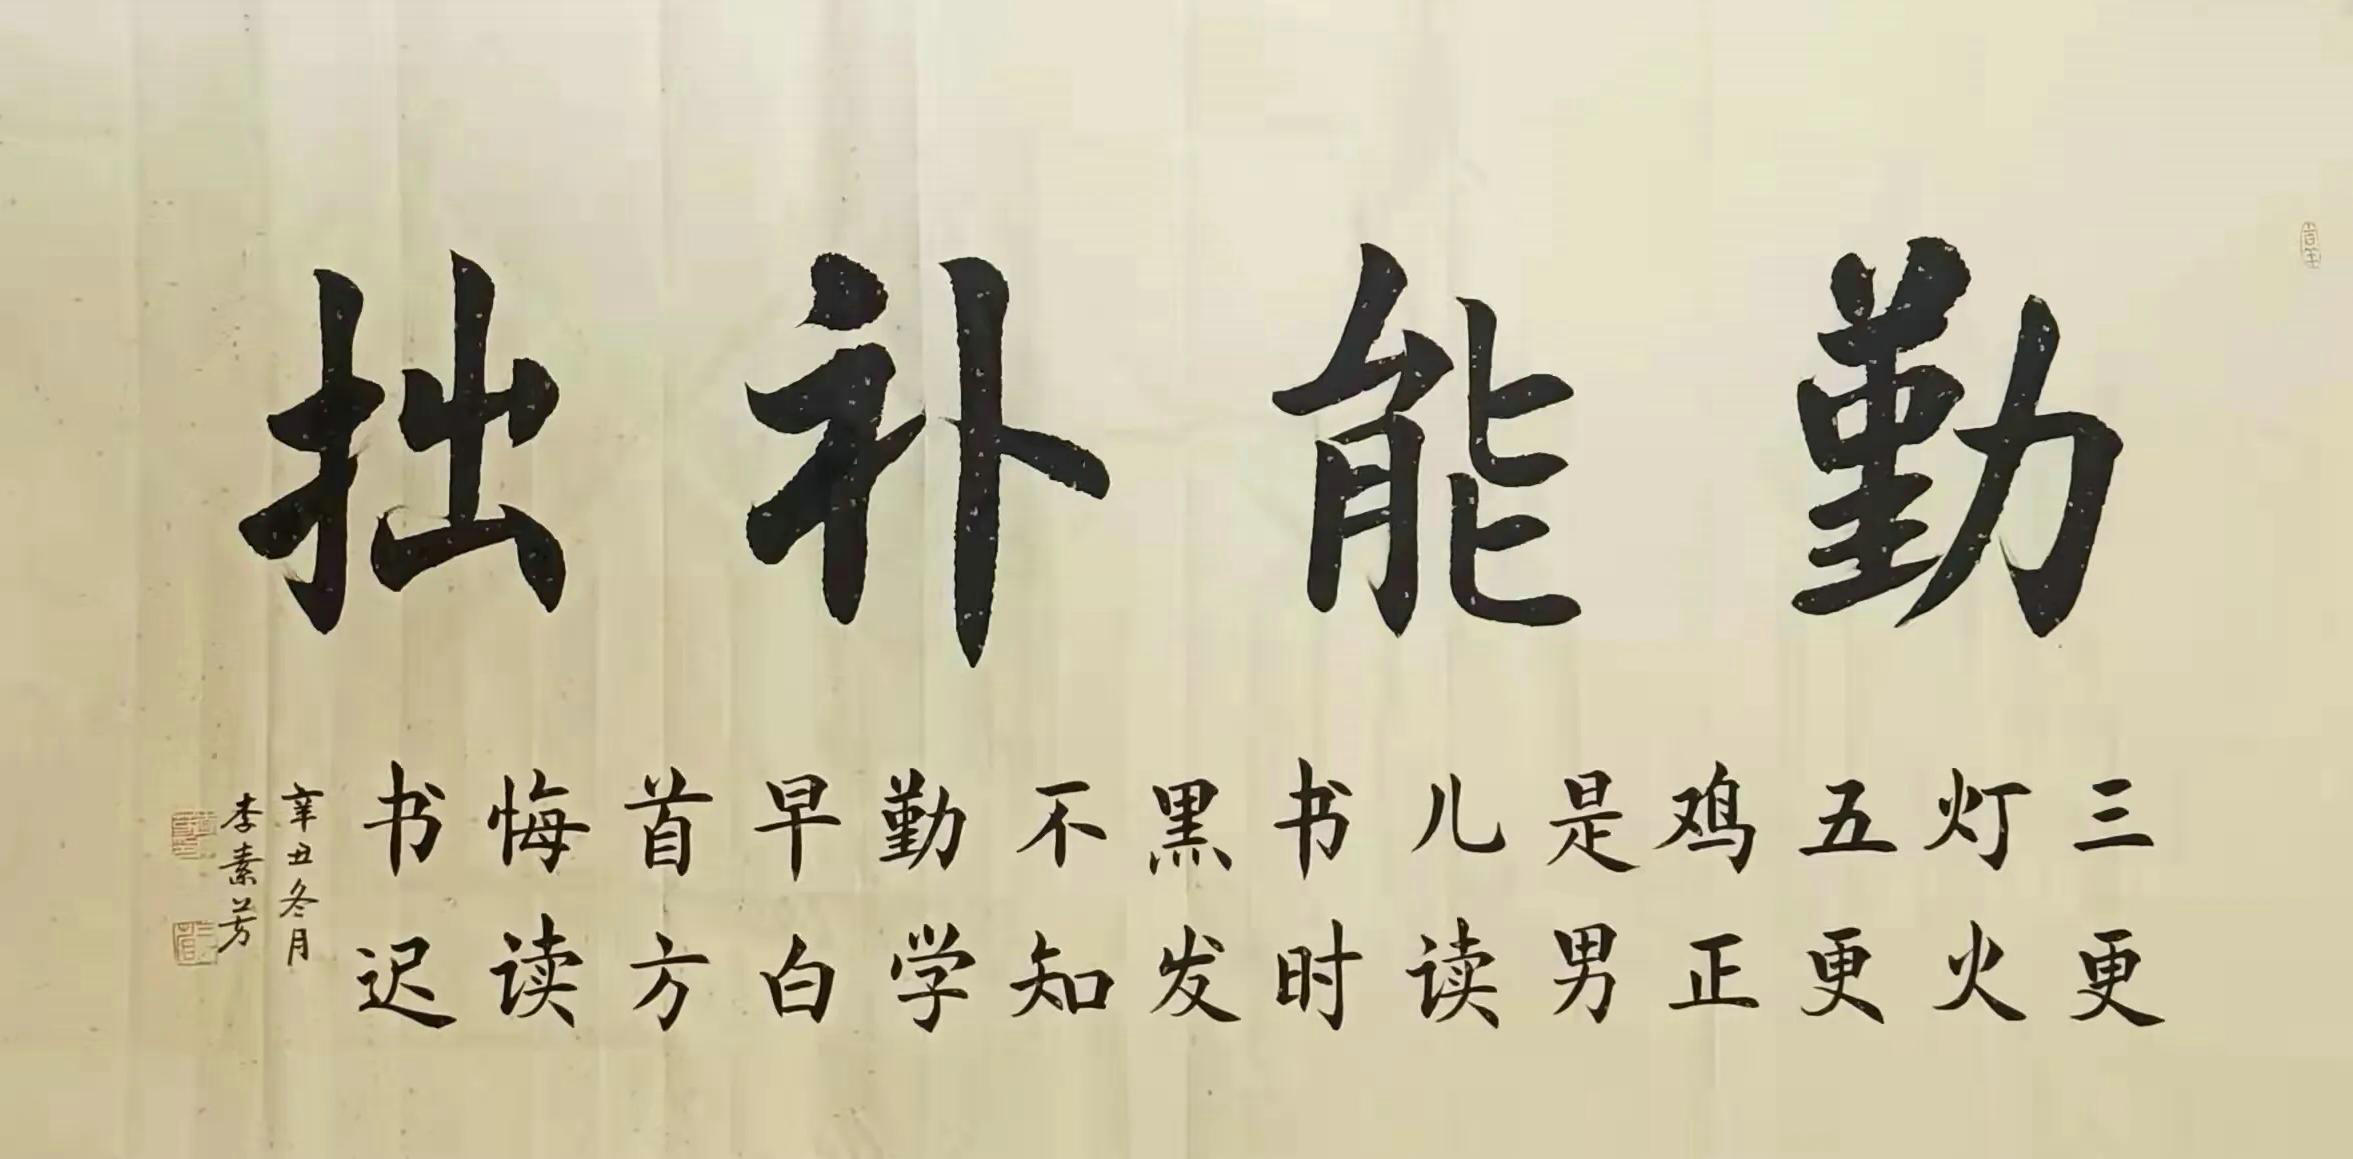 勤能补拙
三更
灯火
五更
鸡正
是男
儿读
书时
黑发
不知
勤学
早白
首方
悔读
书迟
辛丑冬月
李素芳